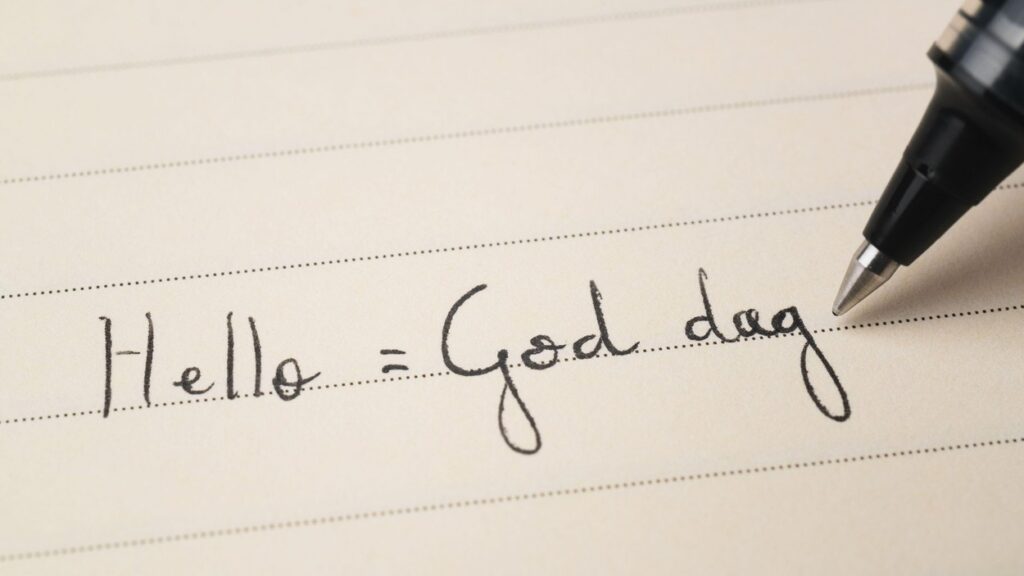 Hello = God dag